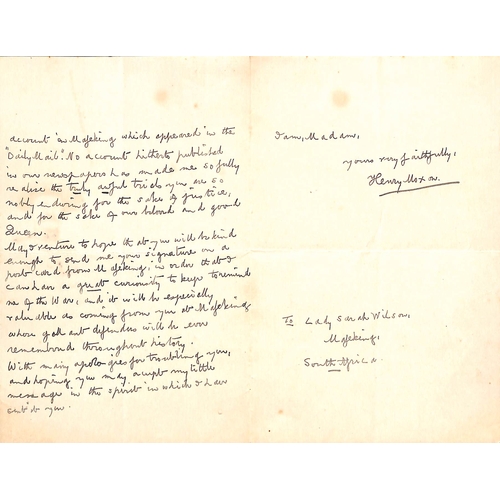 account in Mafeking which appeared in the
"Daily Mail". No account hitherto published
in our newspapers has made me so fully
realise the truly awful trials you are so
nobly enduring for the sake of justice,
and for the sake of our beloved and good
Queen.
May I venture to hope that you will be kind
enough to send me your signature on a
post card from Mafeking, in order that I
can have a great curiosity to keep to remind
me of the War, and it will be especially
valuable as coming from you at Mafeking
whose gallant defenders will be ever
remembered throughout history.
With many apologies for troubling you,
and hoping you may accept my little
message in the spirit in which I have
sent it you.
I am, Madam,
yours very faithfully,
Henry Moxon.
To Lady Sarah Wilson,
Mafeking,
South Africa.